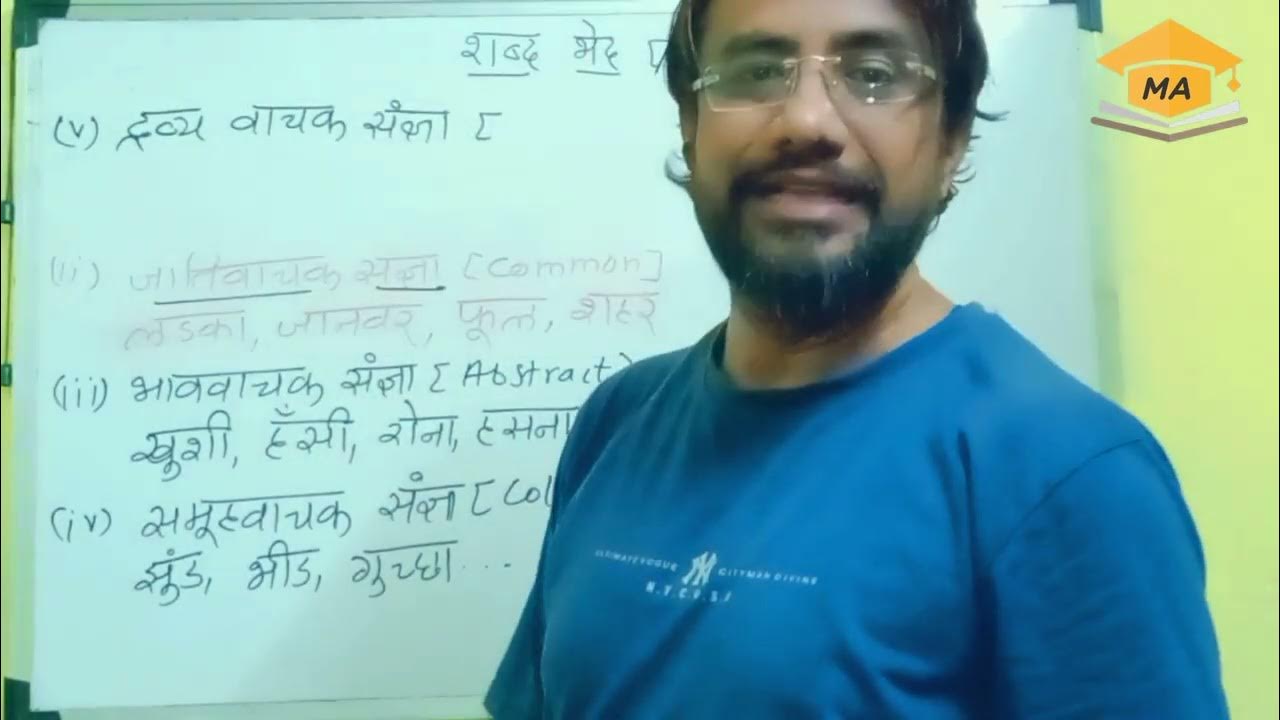 शब्द भेद
(v) द्रव्य वाचक संज्ञा [
(ii) जातिवाचक संज्ञा [Common]
लडका, जानवर, फूल, शहर
(iii) भाववाचक संज्ञा [Abstract
खुशी, हँसी, रोना, हसना
(iv) समूहवाचक संज्ञा [Col
झुंड, भीड, गुच्छा...
MA
ULTIMATEVOGUE NY CITYMAN DIVINE